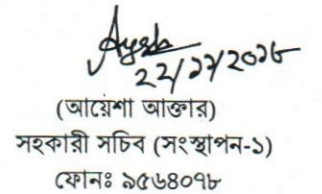 Ayesha
২২/১১/২০১৮
(আয়েশা আক্তার)
সহকারী সচিব (সংস্থাপন-১)
ফোনঃ ৯৫৬৪০৭৮